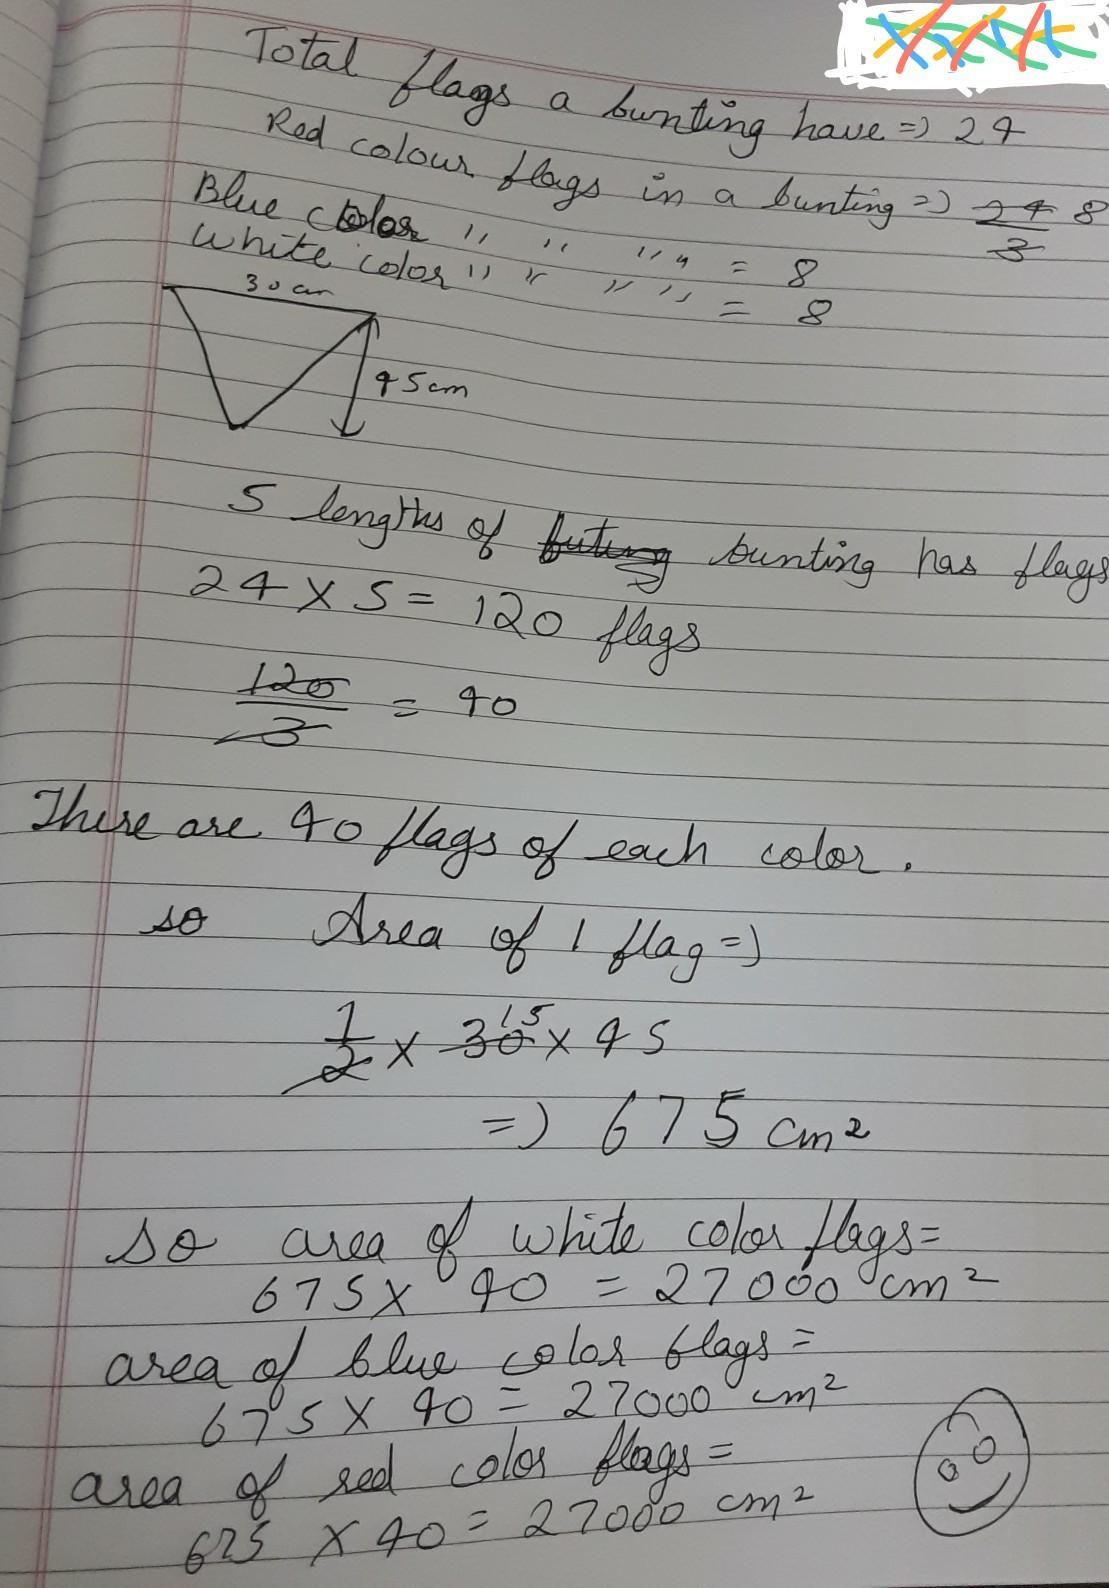 Total flags a bunting have => 24
Red colour flags in a bunting => 24/3 8
Blue color ,, ,, ,, ,, = 8
White color ,, ,, ,, ,, = 8
30 cm
45cm
5 lengths of bunting has flags
24 X 5 = 120 flags
120/3 = 40
There are 40 flags of each color.
so Area of 1 flag =>
1/2 x 30 15 x 45
=> 675 cm²
so area of white color flags =
675 X 40 = 27000 cm²
area of blue color flags =
675 X 40 = 27000 cm²
area of red color flags =
675 X 40 = 27000 cm²